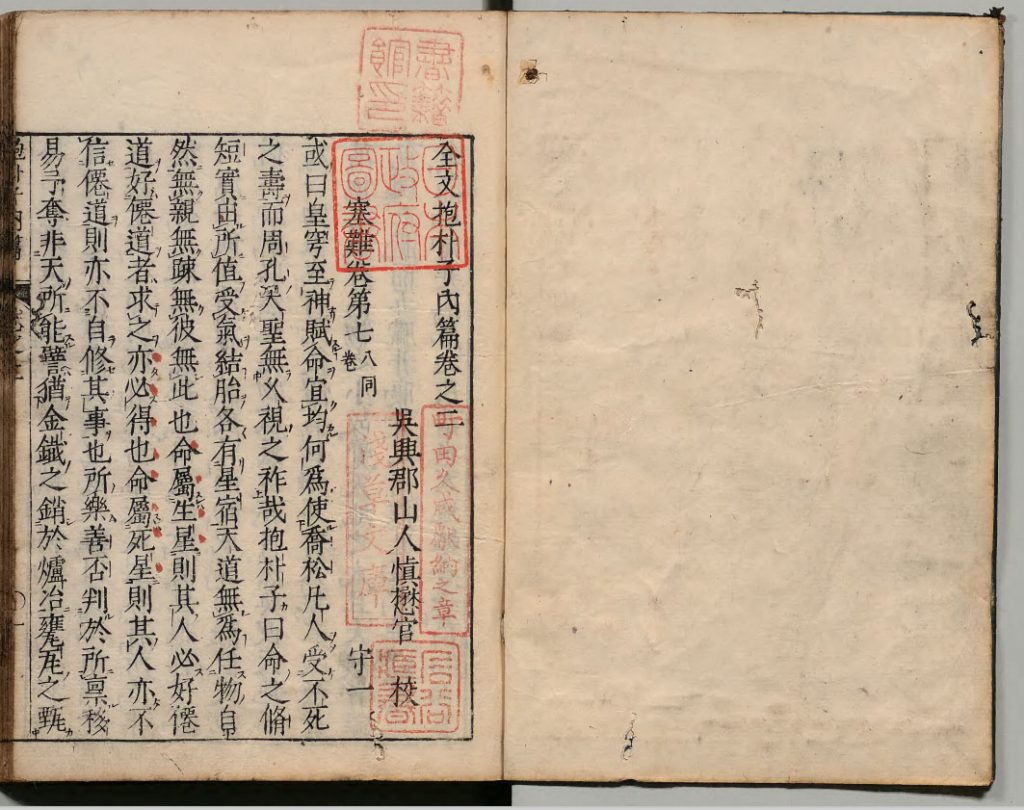 全文抱朴子內篇卷之二
吳興郡山人慎懋官校
塞難卷第七
八同
卷
守一
或曰皇穹至神賦命宜均何爲使喬松凡人受不死
之壽而周孔大聖無乆視之祚哉抱朴子曰命之脩
短實由所值受氣結胎各有星宿天道無爲任物自
然無親無疎無彼無此也命屬生星則其人必好僊
道好僊道者求之亦必得也命屬死星則其人亦不
信僊道則亦不自修其事也所樂善否判於所稟移
易予奪非天所能譬猶金鐡之銷於爐冶甕瓦之甄
書籍館印
日本政府圖書
町田久成獻納之章